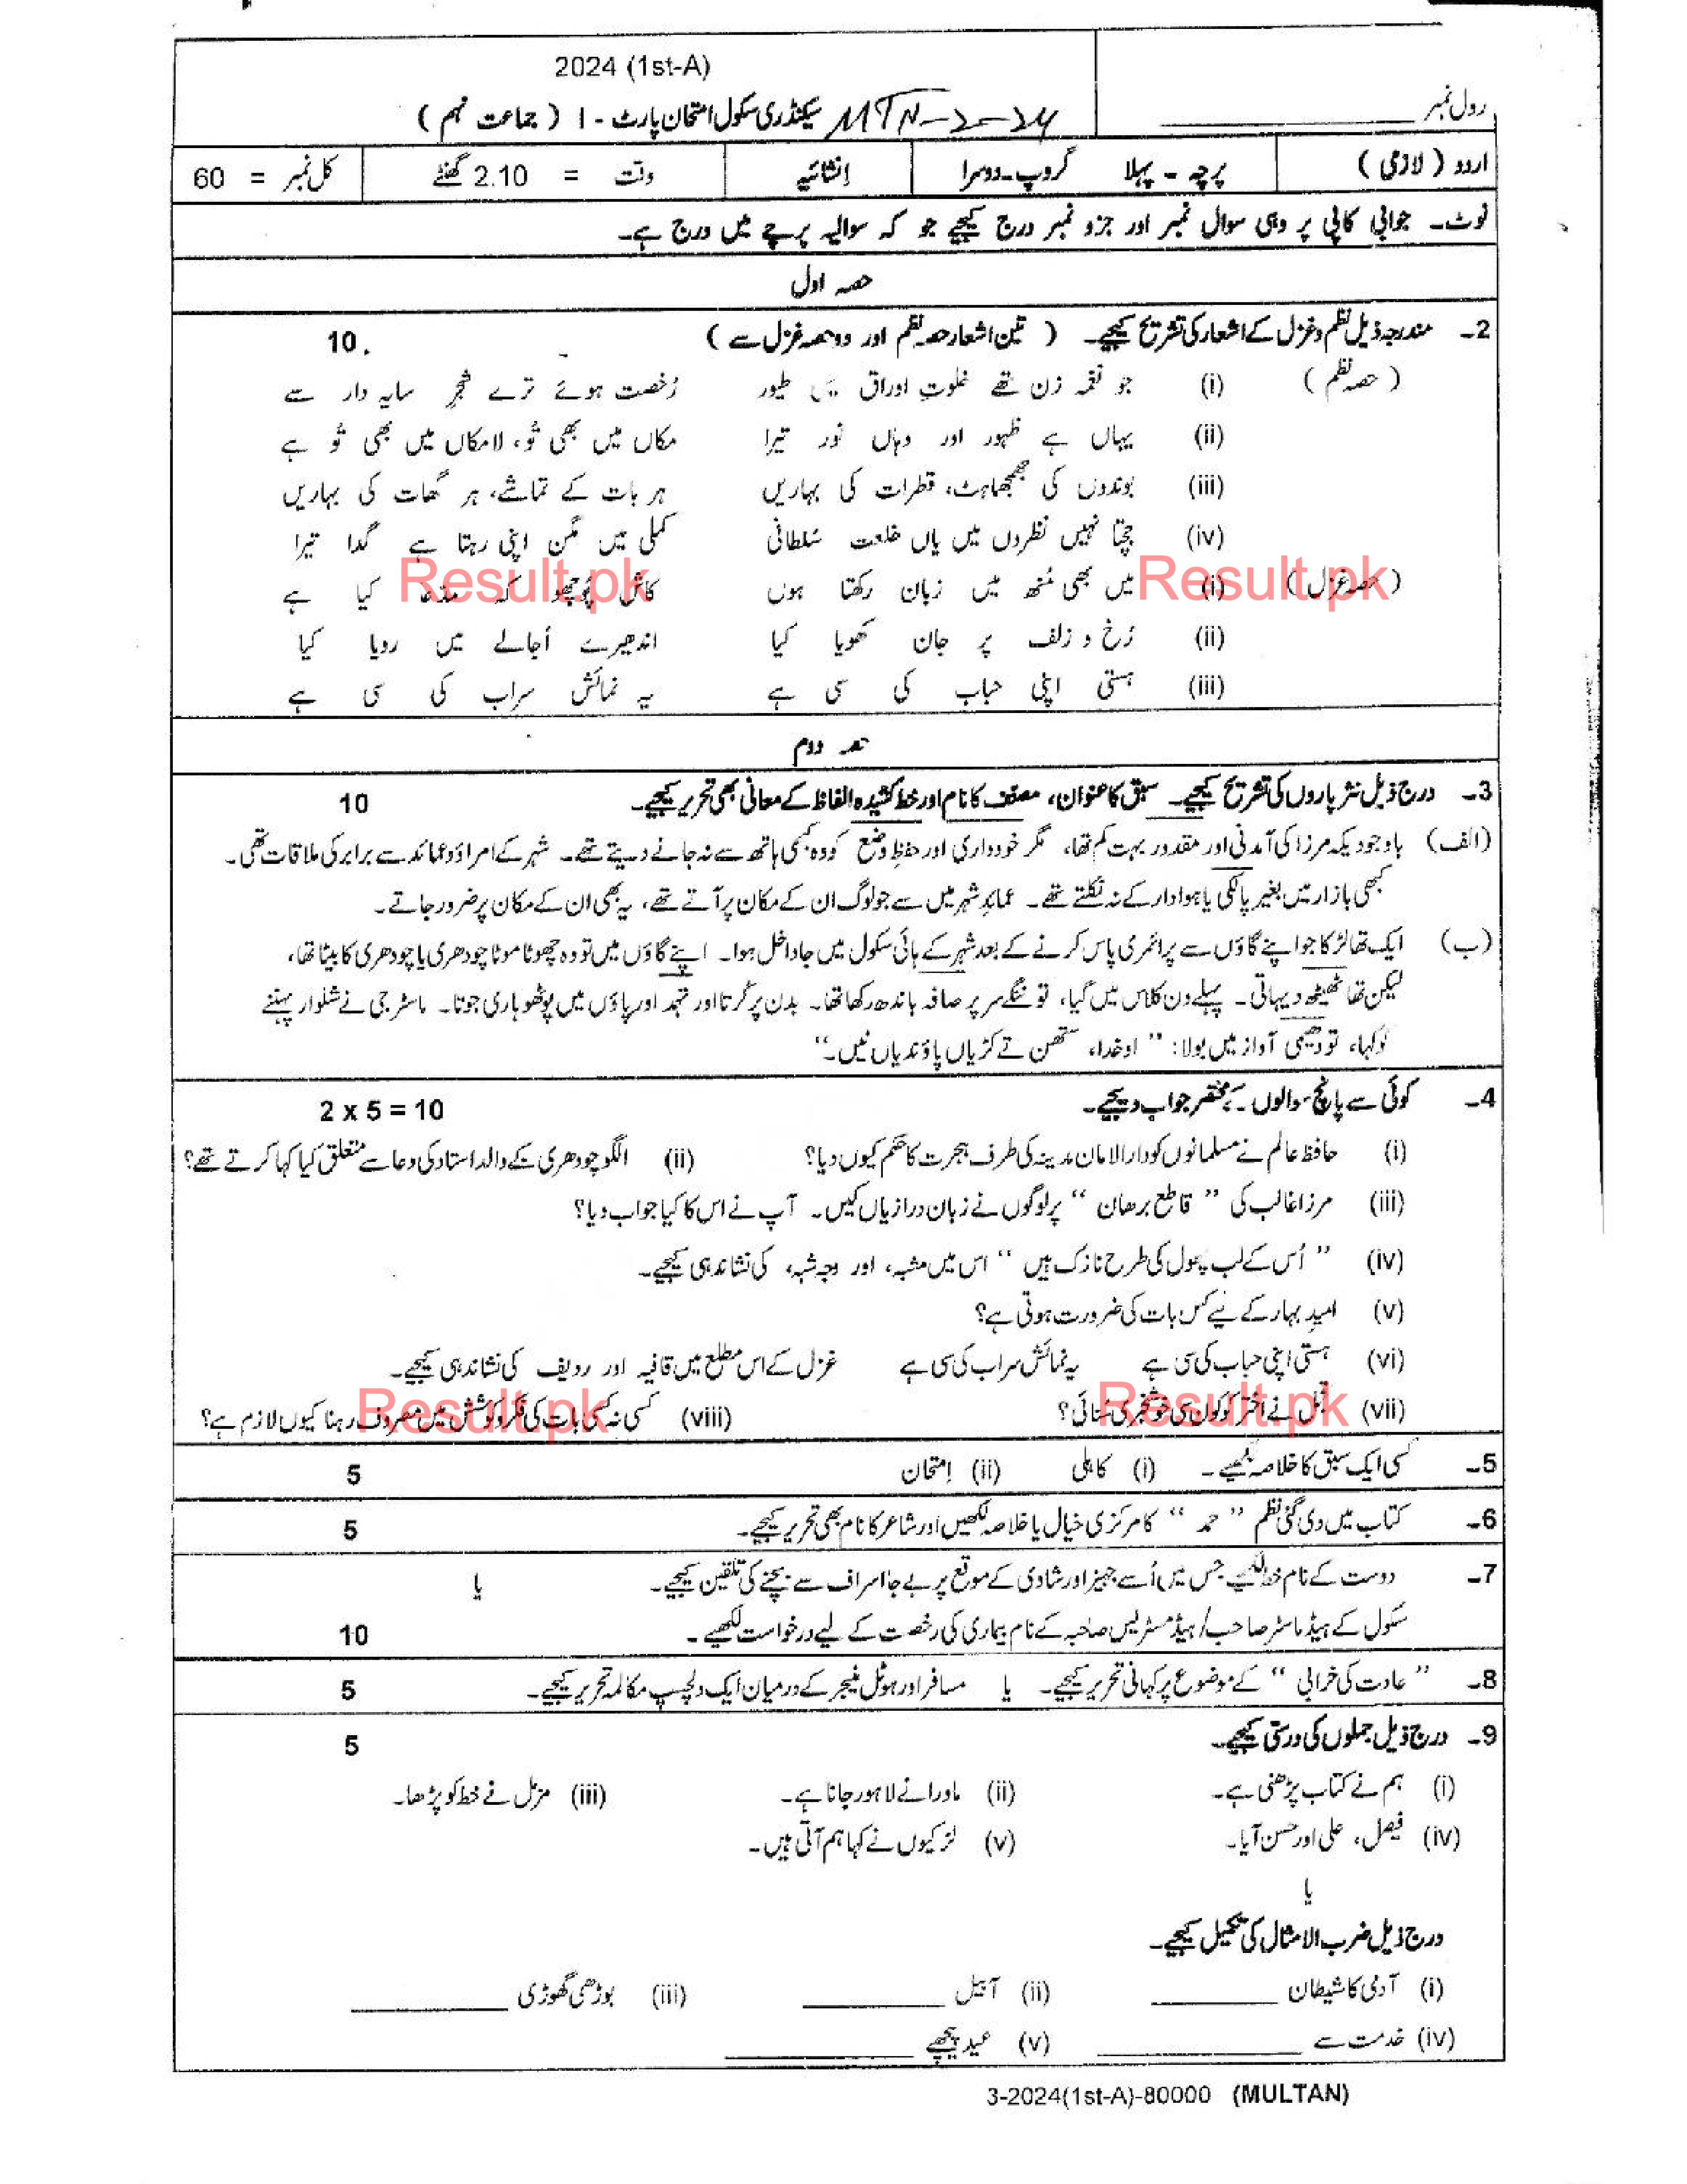 2024 (1st-A)
رول نمبر
سیکنڈری سکول امتحان پارٹ - I ( جماعت نہم ) MTN-2-24
اردو ( لازمی ) پرچہ - پہلا گروپ۔دوسرا اِنشائیہ وقت = 2.10 گھنٹے کل نمبر = 60
نوٹ۔ جوابی کاپی پر وہی سوال نمبر اور جزو نمبر درج کیجیے جو کہ سوالیہ پرچے میں درج ہے۔
حصہ اول
2۔ مندرجہ ذیل نظم و غزل کے اشعار کی تشریح کیجیے۔ ( تین اشعار حصہ نظم اور دو حصہ غزل سے ) 10
( حصہ نظم ) (i) جو نغمہ زن تھے خلوتِ اوراق میں طیور رُخصت ہوئے ترے شجرِ سایہ دار سے
(ii) یہاں ہے ظہور اور وہاں نور تیرا مکاں میں بھی تُو، لامکاں میں بھی تُو ہے
(iii) بوندوں کی جھجھماہٹ، قطرات کی بہاریں ہر بات کے تماشے، ہر گھات کی بہاریں
(iv) جچتا نہیں نظروں میں یاں خلعت سُلطانی کملی میں مگن اپنی رہتا ہے گدا تیرا
( حصہ غزل ) (i) میں بھی مُنھ میں زبان رکھتا ہوں کاش پُوچھو کہ مدعا کیا ہے
(ii) رُخ و زلف پر جان کھویا کیا اندھیرے اُجالے میں رویا کیا
(iii) ہستی اپنی حباب کی سی ہے یہ نمائش سراب کی سی ہے
حصہ دوم
3۔ درج ذیل نثر پاروں کی تشریح کیجیے۔ سبق کا عنوان، مصنف کا نام اور خط کشیدہ الفاظ کے معانی بھی تحریر کیجیے۔ 10
(الف) باوجودیکہ مرزا کی آمدنی اور مقدور بہت کم تھا، مگر خودداری اور حفظِ وضع کو وہ کبھی ہاتھ سے نہ جانے دیتے تھے۔ شہر کے امراؤ و عمائد سے برابر کی ملاقات تھی۔
کبھی بازار میں بغیر پالکی یا ہوادار کے نہ نکلتے تھے۔ عمائدِ شہر میں سے جو لوگ ان کے مکان پر آتے تھے، یہ بھی ان کے مکان پر ضرور جاتے۔
(ب) ایک تھا لڑکا جو اپنے گاؤں سے پرائمری پاس کرنے کے بعد شہر کے ہائی سکول میں جا داخل ہوا۔ اپنے گاؤں میں تو وہ چھوٹا موٹا چودھری یا چودھری کا بیٹا تھا،
لیکن تھا ٹھیٹھ دیہاتی۔ پہلے دن کلاس میں گیا، تو ننگے سر پر صافہ باندھ رکھا تھا۔ بدن پر کُرتا اور تہمد اور پاؤں میں پوٹھوہاری جوتا۔ ماسٹر جی نے شلوار پہننے
کو کہا، تو دھیمی آواز میں بولا: ” اوخدا، ستھن تے کڑیاں پاؤندیاں نیں۔“
4۔ کوئی سے پانچ سوالوں کے مختصر جواب دیجیے۔ 2 x 5 = 10
(i) حافظ عالم نے مسلمانوں کو دارالامان مدینہ کی طرف ہجرت کا حکم کیوں دیا؟ (ii) الگو چودھری کے والد استاد کی دعا سے متعلق کیا کہا کرتے تھے؟
(iii) مرزا غالب کی ” قاطع برھان “ پر لوگوں نے زبان درازیاں کیں۔ آپ نے اس کا کیا جواب دیا؟
(iv) ” اُس کے لب پھول کی طرح نازک ہیں “ اس میں مشبہ، اور وجہ شبہ، کی نشاندہی کیجیے۔
(v) امیدِ بہار کے لیے کس بات کی ضرورت ہوتی ہے؟
(vi) ہستی اپنی حباب کی سی ہے یہ نمائش سراب کی سی ہے غزل کے اس مطلع میں قافیہ اور ردیف کی نشاندہی کیجیے۔
(vii) نے اختر کو کون سی خوشخبری سُنائی؟ (viii) کسی نہ کسی بات کی فکر و کوشش میں مصروف رہنا کیوں لازم ہے؟
5۔ کسی ایک سبق کا خلاصہ لکھیے۔ (i) کاہلی (ii) اِمتحان 5
6۔ کتاب میں دی گئی نظم ” حمد “ کا مرکزی خیال یا خلاصہ لکھیں اور شاعر کا نام بھی تحریر کیجیے۔ 5
7۔ دوست کے نام خط لکھیے جس میں اُسے جہیز اور شادی کے موقع پر بے جا اسراف سے بچنے کی تلقین کیجیے۔ یا
سکول کے ہیڈ ماسٹر صاحب/ ہیڈ مسٹریس صاحبہ کے نام بیماری کی رخصت کے لیے درخواست لکھیے۔ 10
8۔ ” عادت کی خرابی “ کے موضوع پر کہانی تحریر کیجیے۔ یا مسافر اور ہوٹل منیجر کے درمیان ایک دلچسپ مکالمہ تحریر کیجیے۔ 5
9۔ درج ذیل جملوں کی درستی کیجیے۔ 5
(i) ہم نے کتاب پڑھنی ہے۔ (ii) ماورا نے لاہور جانا ہے۔ (iii) مزمل نے خط کو پڑھا۔
(iv) فیصل، علی اور حسن آیا۔ (v) لڑکیوں نے کہا ہم آتی ہیں۔
یا
درج ذیل ضرب الامثال کی تکمیل کیجیے۔
(i) آدمی کا شیطان ________ (ii) آ بیل ________ (iii) بوڑھی گھوڑی ________
(iv) خدمت سے ________ (v) عید پیچھے ________
3-2024(1st-A)-80000 (MULTAN)
Result.pk
Result.pk
Result.pk
Result.pk